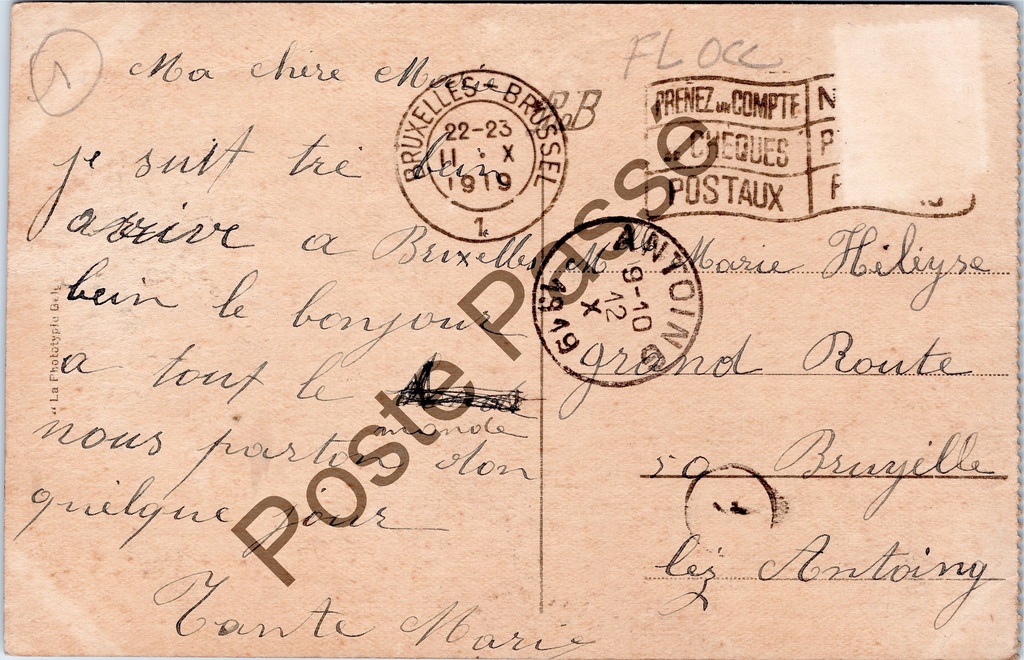 1
FL OCC
Ma chère Marie
je suit tré bein
arrive a Bruxelles
bein le bonjour
a tout le
monde
nous parton don
quelque jour
Tante Marie
BRUXELLES-BRUSSEL
22-23
11 X
1919
1
PRENEZ UN COMPTE
CHEQUES
POSTAUX
N
P
ANTOING
9-10
12
X
1919
Mlle Marie Héleyse
grand Route
59 Bruyelle
léz Antoing
1
"La Phototypie
Poste Passe